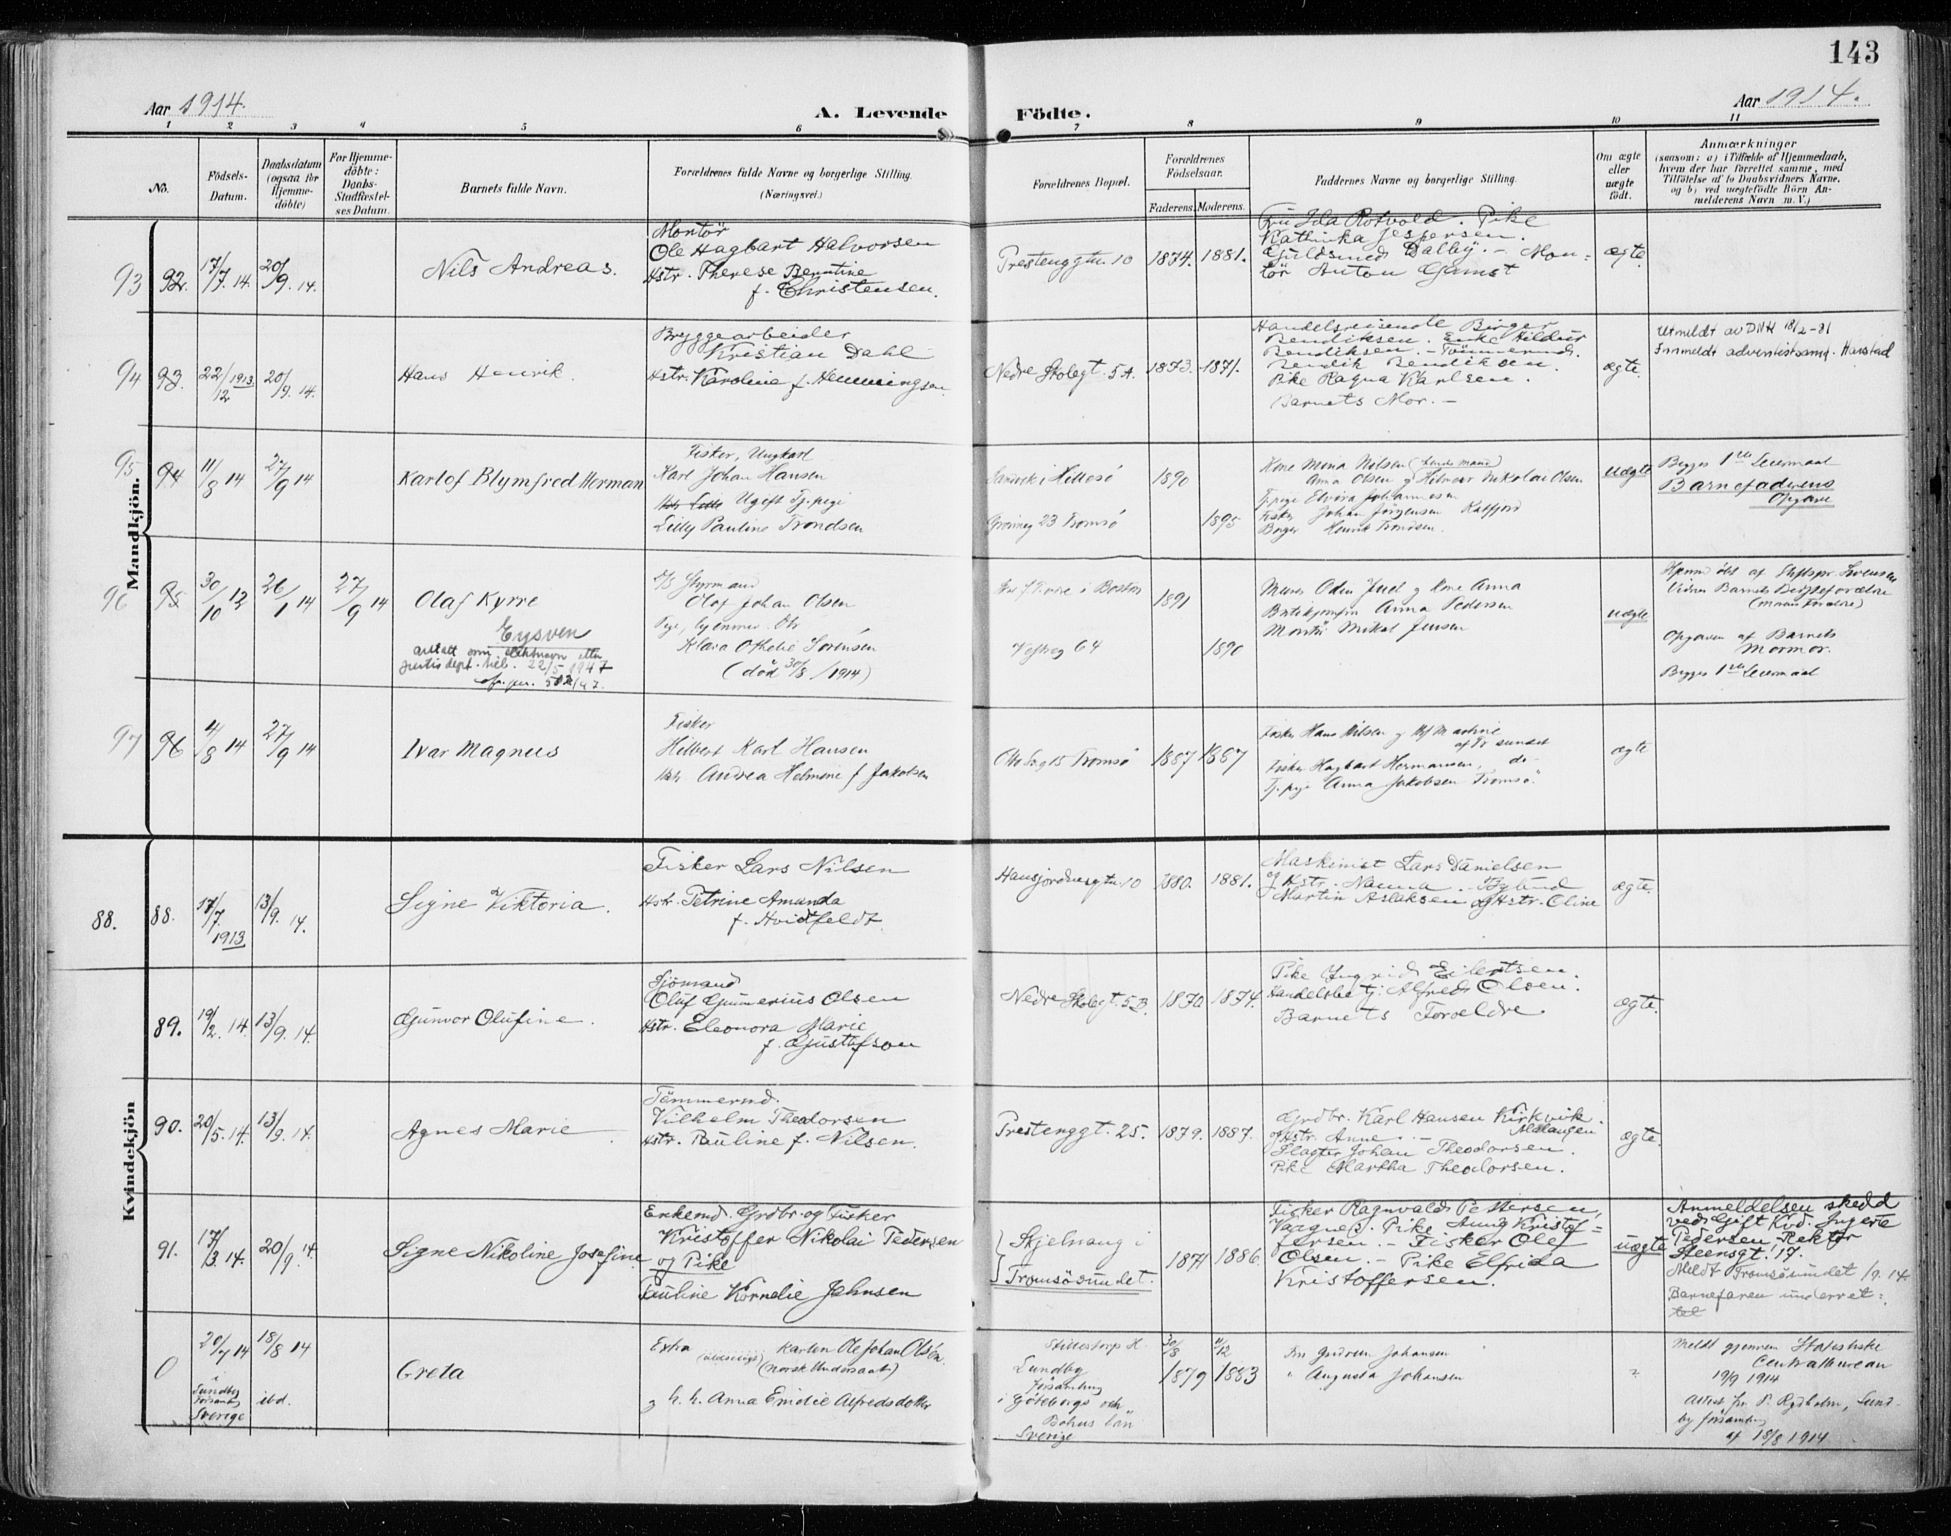 143
Aar 1914.
A. Levende Födte.
Aar 1914.
1 2 3 4 5 6 7 8 9 10 11
No.
Födsels-Datum.
Daabsdatum (ogsaa for Hjemme-döbte)
For Hjemme-döbte: Daabs-Stadfæstel-ses Datum.
Barnets fulde Navn.
Forældrenes fulde Navne og borgerlige Stilling.
(Næringsvei.)
Forældrenes Bopæl.
Forældrenes Födselsaar.
Faderens. Moderens.
Faddernes Navne og borgerlige Stilling.
Om ægte eller uægte födt.
Anmærkninger
(saasom: a) i Tilfælde af Hjemmedaab,
hvem der har forrettet samme, med
Tilföielse af to Daabsvidners Navne,
og b) ved uægtefödte Börn An-
melderens Navn m. V.)
Mandkjön.
93 92. 17/7. 14. 20/9. 14.
Nils Andreas.
Montör
Ole Hagbart Halvorsen
Hstr. Therese Berntine
f. Christensen.
Prestenggtn. 10
1874. 1881.
Fru Ida Rotvold. Pike
Kathinka Jespersen.
Guldsmed Dalby. - Mon=
tör Anton Gamst
ægte
94 93. 22/12 1913 20/9. 14.
Hans Henrik.
Bryggearbeider
Kristian Dahl
Hstr. Karoline f. Henningsen.
Nedre Skolegt. 5 A.
1873. 1871.
Handelsreisende Birger
Bendiksen. Enke Hildur
Bendiksen. - Tömmermd.
Bendik Bendiksen.
Pike Ragna Karlsen.
Barnets Mor. -
ægte.
Utmeldt av DNK 18/2-31
Innmeldt adventistsamf. Harstad
95 94 11/8 14 27/9 14
Karlof Blymfred Herman
Fisker, Ungkarl
Karl Johan Hansen
Ugift Tj.pige
Lilly Pauline Trondsen
i Hillesö
23 Tromsö
1890
1895
Kone Mona Nilsen
Anna Olsen og Hilmar Nikolai Olsen
Tj.pige Elvira Johannesen
Fisker Johan Jörgensen Kalfjord
Borger Henrik Trondsen.
uægte
Begges 1ste Leiermaal
Barnefaderens
Opgave
96 95 30/10 13 26/1 14 27/9 14
Olaf Kyrre
Eysven
antatt som slektnavn etter
justisdept. bev. 22/5 1947
Styrmand
Olaf Johan Olsen
Klara Othelie Sörensen
(död 30/8 1914)
i Bostön
64
1891
1890
Murer Oden Juel og Kone Anna
Butikjomfru Anna Pedersen
Montör Mikal Jensen
uægte
Hjemmedöbt af Stiftspr. Sövensen
Vidner Barnets Besteforældre
Opgaven af Barnets
Mormor.
Begges 1ste Leiermaal
97 96 4/8 14 27/9 14
Ivar Magnus
Fisker
Hilbert Karl Hansen
Hstr. Andrea Helmine f Jakobsen
15 Tromsö
1887 1887
Fisker Hans Nilsen og Hst Martine
Fisker Hagbart Hermansen, do-
Tj.pige Anna Jakobsen Tromsö
ægte
Kvindekjön
88. 88. 17/7. 1913 13/9. 14.
Signe Viktoria.
Fisker Lars Nilsen
Hstr. Petrine Amanda
f. Hvidtfeldt.
Hansjordnesgtn. 10
1880. 1881.
Maskinist Lars Danielsen
og Hstr. Nanna.
Martin Aslaksen og Hstr. Oline
ægte.
89. 19/2. 14. 13/9. 14.
Gunvor Olufine.
Sjömand
Oluf Gunnerius Olsen
Hstr. Eleonora Marie
f. Gustafson
Nedre Skolegt. 5 B.
1870 1874.
Pike Ingrid Eilertsen.
Handelsbetj. Alfred Olsen.
Barnets Forældre
ægte.
90. 20/5. 14. 13/9. 14.
Agnes Marie
Tömmermd.
Vilhelm Theodorsen
Hstr. Pauline f. Nilsen.
Prestenggt. 25.
1879. 1887.
Grdbr. Karl Hansen Kirkvik.
og Hstr. Anne - Malangen
Slagter Johan Theodorsen.
Pike Martha Theodorsen.
ægte.
91. 17/3. 14. 20/9. 14.
Signe Nikoline Josefine
Enkemd. Grdbr. og Fisker
Kristoffer Nikolai Pedersen
og Pike
Pauline Kornelie Johnsen
Skjelnang i
Tromsösundet.
1871 1886.
Fisker Ragnvald Pettersen,
Vaagnes. Pike Anny Kristof=
fersen. - Fisker Olef
Olsen. - Pike Elfrida
Kristoffersen.
uægte
Anmeldelsen skedd
ved Gift Kvd. Ingerte
Pedersen Rektor
Steensgt. 17.
Meldt Tromsösundet 1/9. 14
Barnefaren underret=
tet
0 20/4 14 18/8 14
i Lundby Församl. Sverige
ibd.
Greta
Extra Karten Ole Johan Olsén
(norsk Undersaat)
og h. h. Anna Emelie Alfredsdotter
Stillestorp
Lundby
församling
i Göteborgs och
Bohus län
Sverige
30/8 1879 11/12 1883
Frk Gudrun Johansen
" Augusta Johansen
"
Meldt gjennem Statistiske
Centralbureau
19/9 1914
Attest fra P. Rydholm, Lund-
by församling
af 18/8 1914